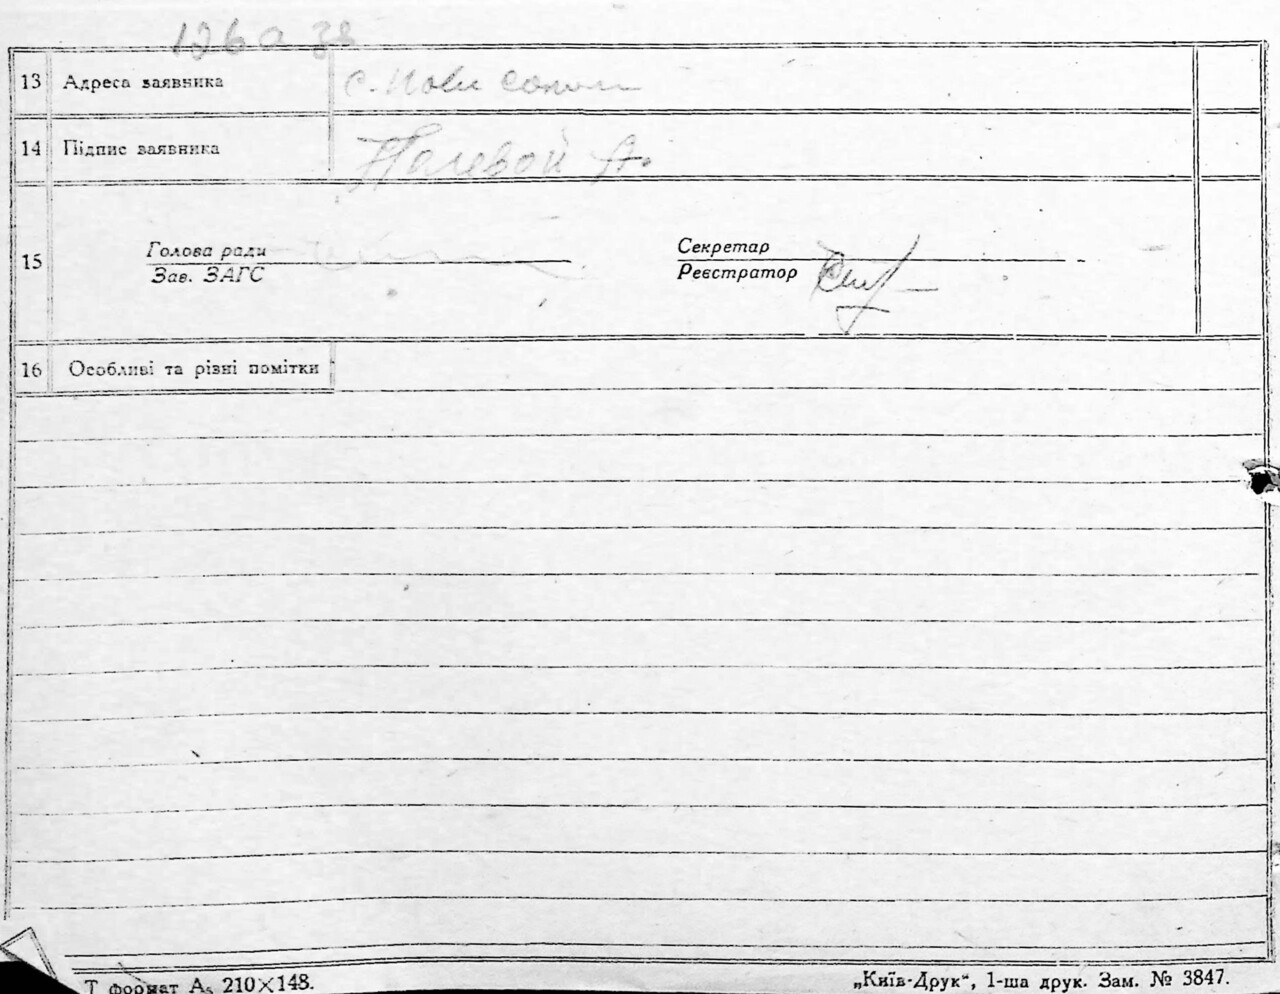 126а зв
13 Адреса заявника с. Нови
14 Підпис заявника Палевой А.
15 Голова ради Секретар
Зав. ЗАГС Реєстратор
16 Особливі та різні помітки
Т формат А₅ 210×148. „Київ-Друк“, 1-ша друк. Зам. № 3847.